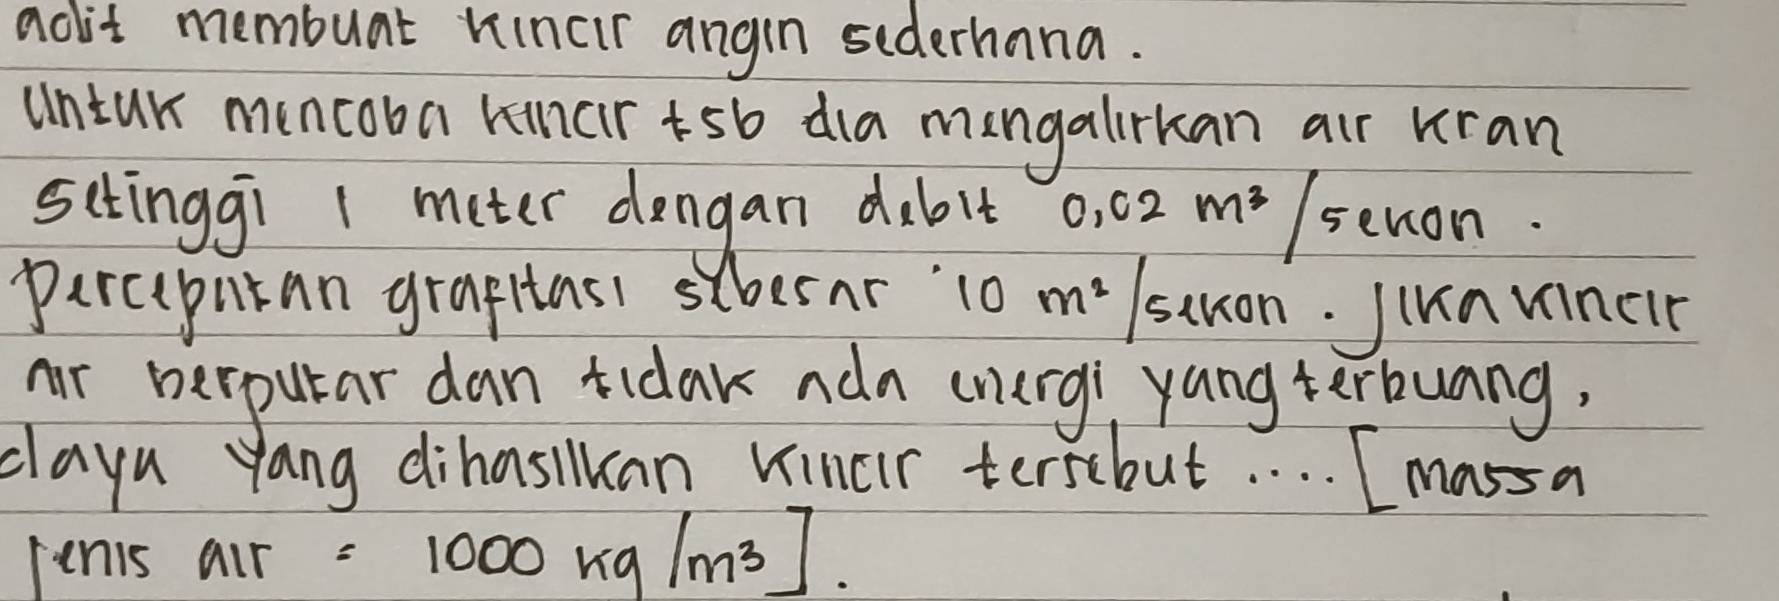 adit membuat kincir angin sederhana.
Untuk mencoba kincir tsb dia mengalirkan air kran
setinggi 1 meter dengan debit 0,02 m³/sekon.
Percepatan grafitasi sebesar 10 m²/sekon. Jika kincir
air berputar dan tidak ada energi yang terbuang,
daya yang dihasilkan kincir tersebut .... [massa
jenis air = 1000 kg/m³].